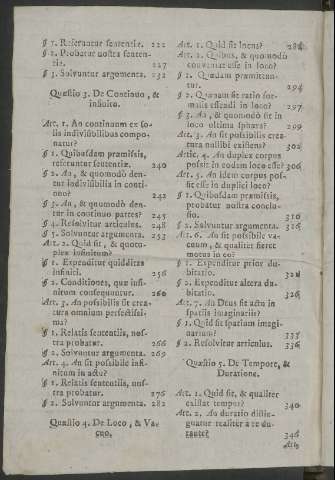 § 1. Referuntur sententiæ. 222
§ 2. Probatur nostra senten-
tia. 227
§ 3. Solvuntur argumenta. 232
Quæstio 3. De Continuo, &
infinito.
Art. 1. An continuum ex so-
lis indivisibilibus compo-
natur?
§ 1. Quibusdam præmissis,
referuntur sententiæ. 240
§ 2. An, & quomodò den-
tur indivisibilia in conti-
nuo? 242
§ 3. An, & quomodò den-
tur in continuo partes? 245
§ 4. Resolvitur articulus. 248
§ 5. Solvuntur argumenta. 253
Art. 2. Quid sit, & quotu-
plex infinitum?
§ 1. Expenditur quidditas
infiniti. 256
§ 2. Conditiones, quæ infi-
nitum consequuntur. 260
Art. 3. An possibilis sit crea-
tura omnium perfectissi-
ma?
§ 1. Relatis sententiis, nos-
tra probatur. 266
§ 2. Solvuntur argumenta. 269
Art. 4. An sit possibile infi-
nitum in actu?
§ 1. Relatis sententiis, nos-
tra probatur. 276
§ 2. Solvuntur argumenta. 282
Quæstio 4. De Loco, & Va-
cuo.
Art. 1. Quid sit locus? 286
Art. 2. Quibus, & quomodò
conveniat esse in loco?
§ 1. Quædam præmittun-
tur. 294
§ 2. Quænam sit ratio for-
malis essendi in loco? 297
§ 3. An, & quomodò sit in
loco ultima sphæra? 299
Art. 3. An sit possibilis crea-
tura nullibi existens? 302
Artic. 4. An duplex corpus
possit in eodem loco esse? 306
Art. 5. An idem corpus pos-
sit esse in duplici loco?
§ 1. Quibusdam præmissis,
probatur nostra conclu-
sio. 310
§ 2. Solvuntur argumenta. 316
Art. 6. An sit possibile va-
cuum, & qualiter fieret
motus in eo?
§ 1. Expenditur prior du-
bitatio.
§ 2. Expenditur altera du-
bitatio. 326
Art. 7. An Deus sit actu in
spatiis imaginariis?
§ 1. Quid sit spatium imagi-
narium? 333
§ 2. Resolvitur articulus. 336
Quæstio 5. De Tempore, &
Duratione.
Art. 1. Quid sit, & qualiter
existat tempus? 340
Art. 2. An duratio distin-
guatur realiter a re du-
rante? 346
Art.